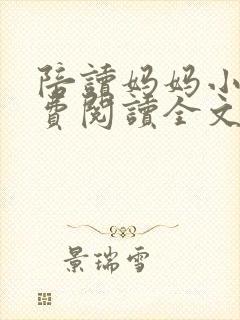 陪讀妈妈小
費閱讀全文
景瑞雪